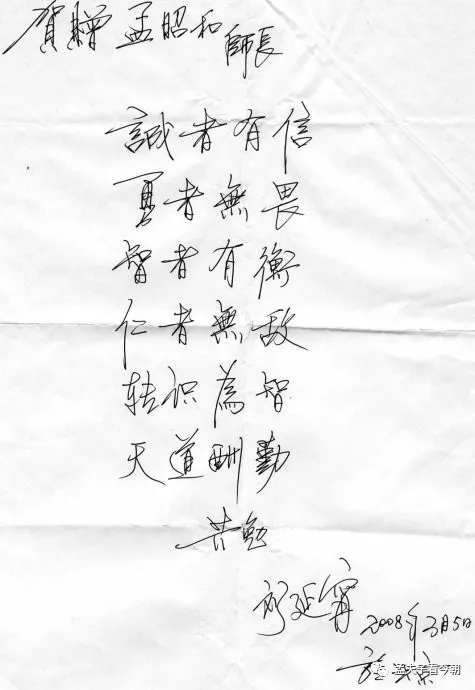 賀贈 孟昭和師長
誠者有信
勇者無畏
智者有衡
仁者無敌
转识為智
天道酬勤
共勉
延甯
2008年3月5日
於京
孟夫子看今朝